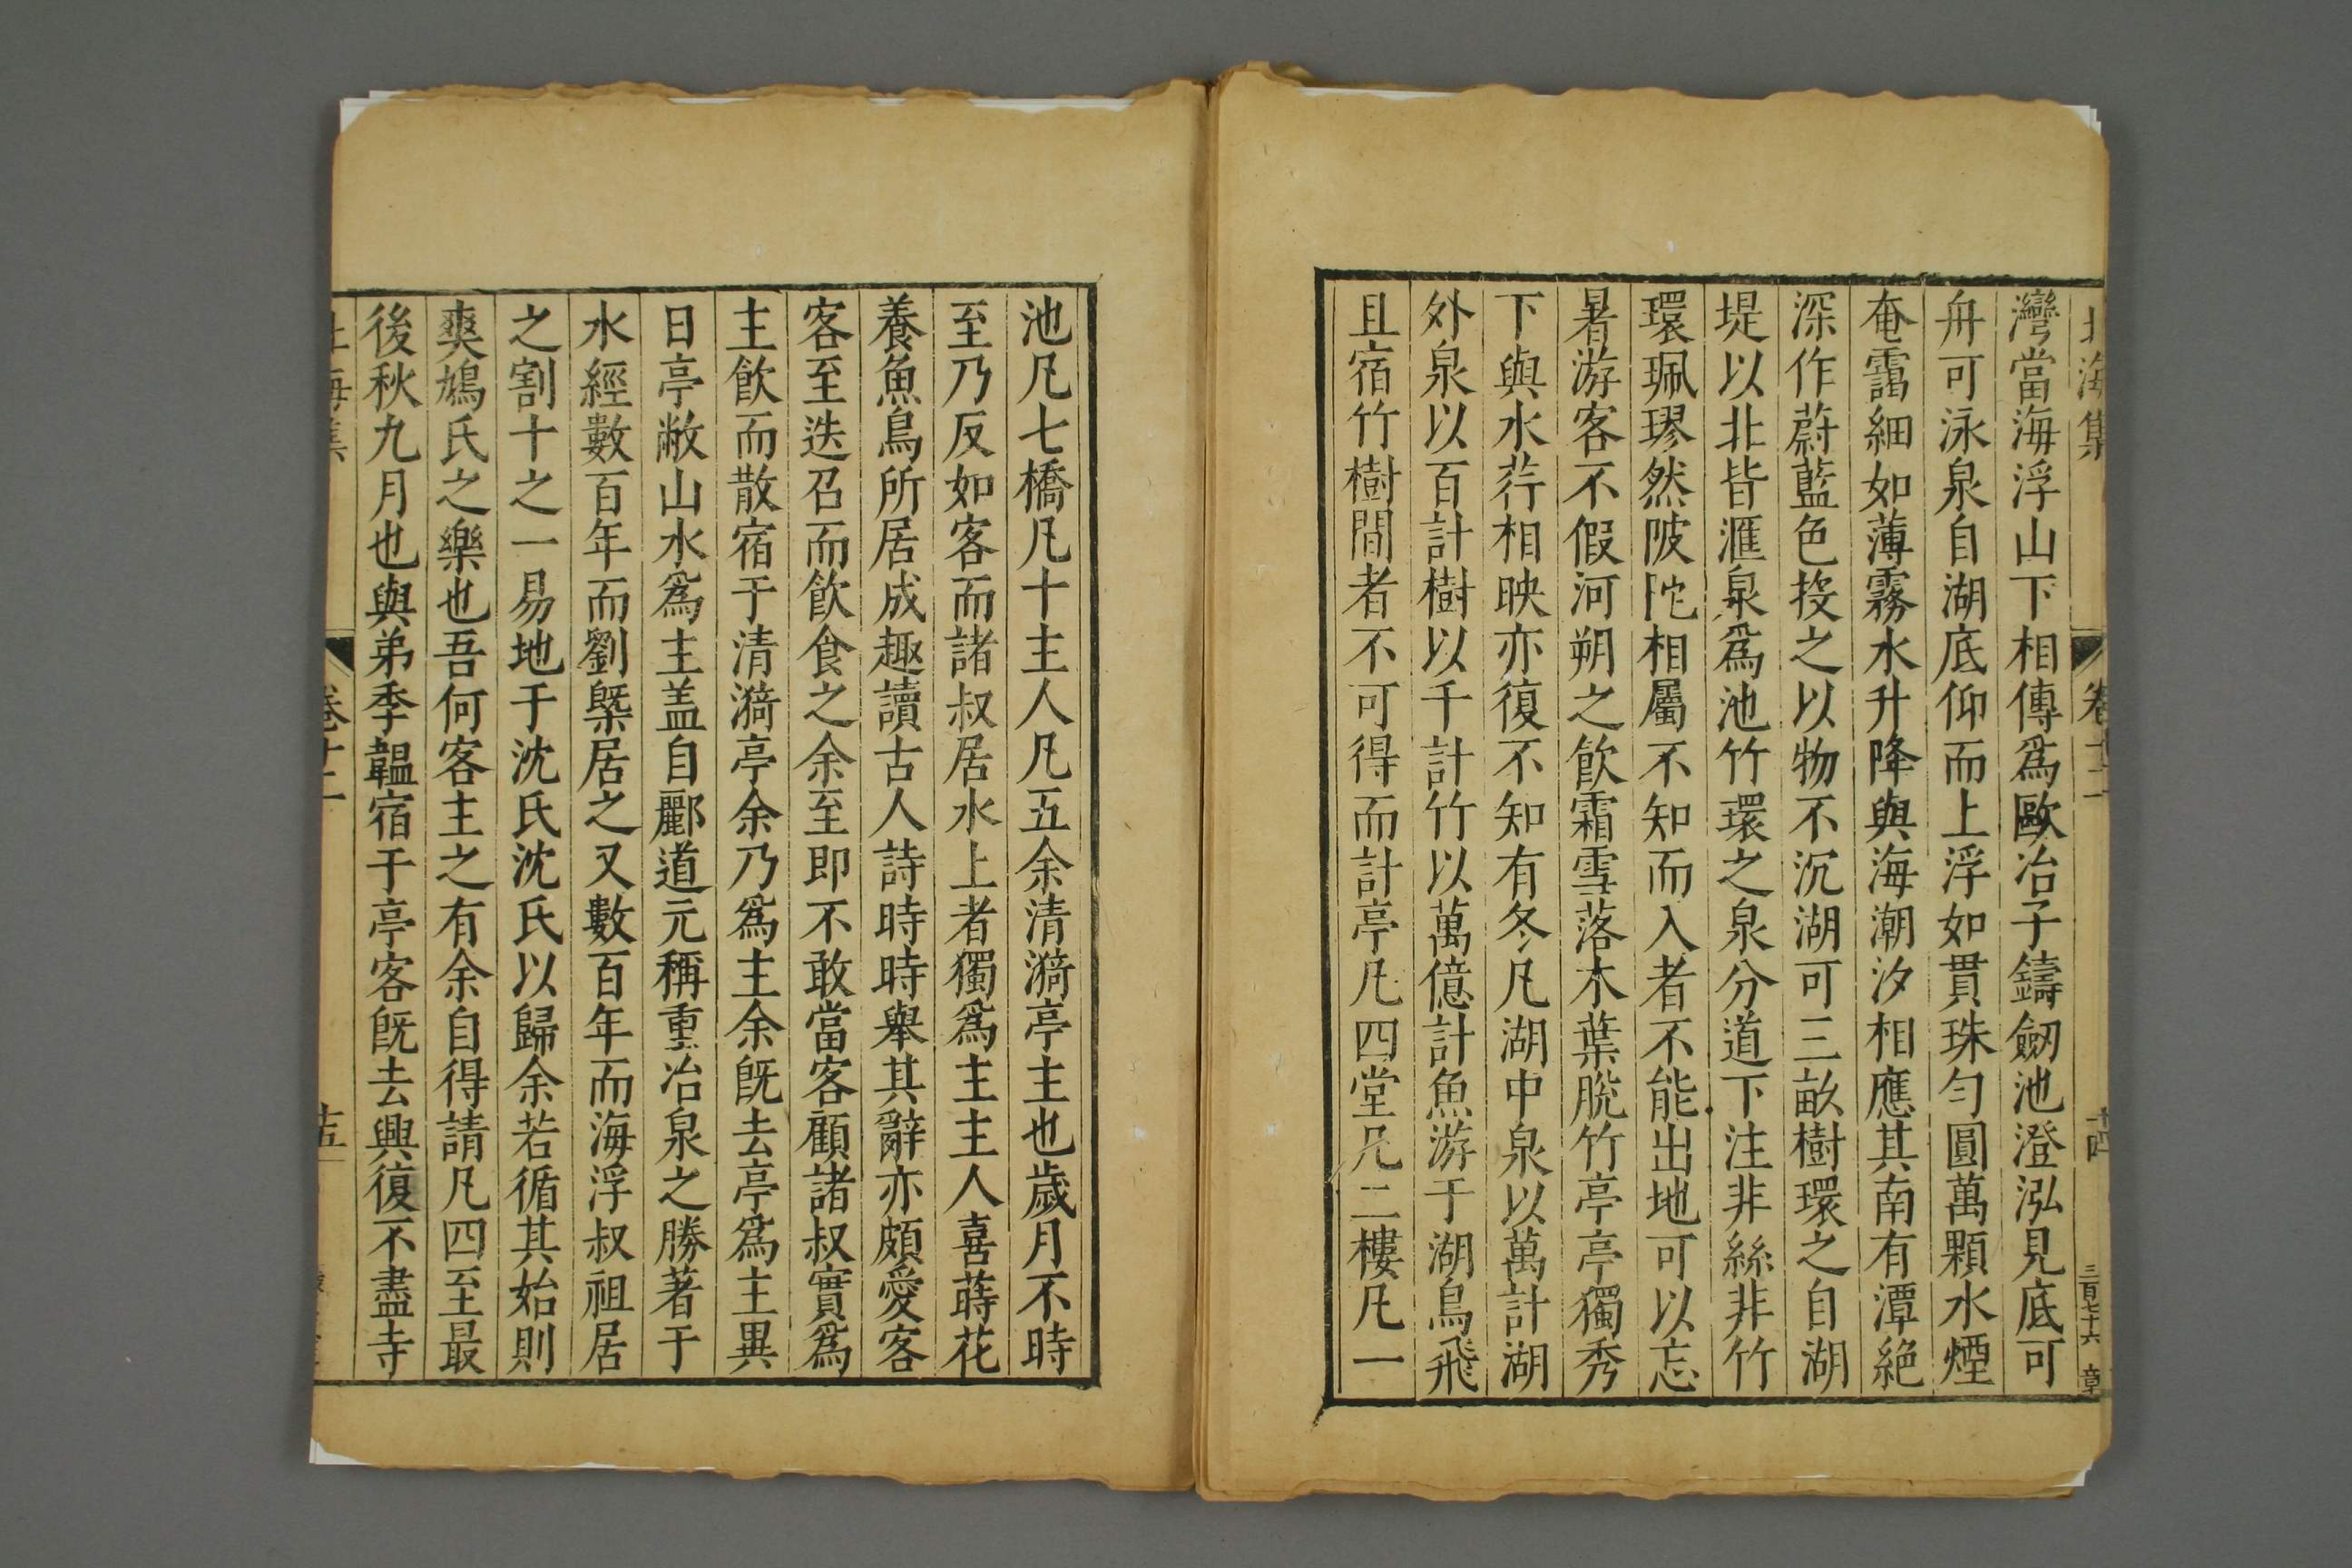 北海集 卷十二 十四 三百七十六 章
灣當海浮山下相傳爲歐冶子鑄劒池澄泓見底可
舟可泳泉自湖底仰而上浮如貫珠勻圓萬顆水煙
奄靄細如薄霧水升降與海潮汐相應其南有潭絶
深作蔚藍色投之以物不沉湖可三畝樹環之自湖
堤以北皆滙泉爲池竹環之泉分道下注非絲非竹
環珮璆然陂陀相屬不知而入者不能出地可以忘
暑游客不假河朔之飮霜雪落木葉脫竹亭亭獨秀
下與水荇相映亦復不知有冬凡湖中泉以萬計湖
外泉以百計樹以千計竹以萬億計魚游于湖鳥飛
且宿竹樹間者不可得而計亭凡四堂凡二樓凡一
池凡七橋凡十主人凡五余清漪亭主也歲月不時
至乃反如客而諸叔居水上者獨爲主主人喜蒔花
養魚鳥所居成趣讀古人詩時時舉其辭亦頗愛客
客至迭召而飮食之余至即不敢當客顧諸叔實爲
主飮而散宿于清漪亭余乃爲主余旣去亭爲主異
日亭敝山水爲主盖自酈道元稱重冶泉之勝著于
水經數百年而劉槩居之又數百年而海浮叔祖居
之割十之一易地于沈氏沈氏以歸余若循其始則
爽鳩氏之樂也吾何客主之有余自得請凡四至最
後秋九月也與弟季韞宿于亭客旣去興復不盡寺
海集 卷十二 十五